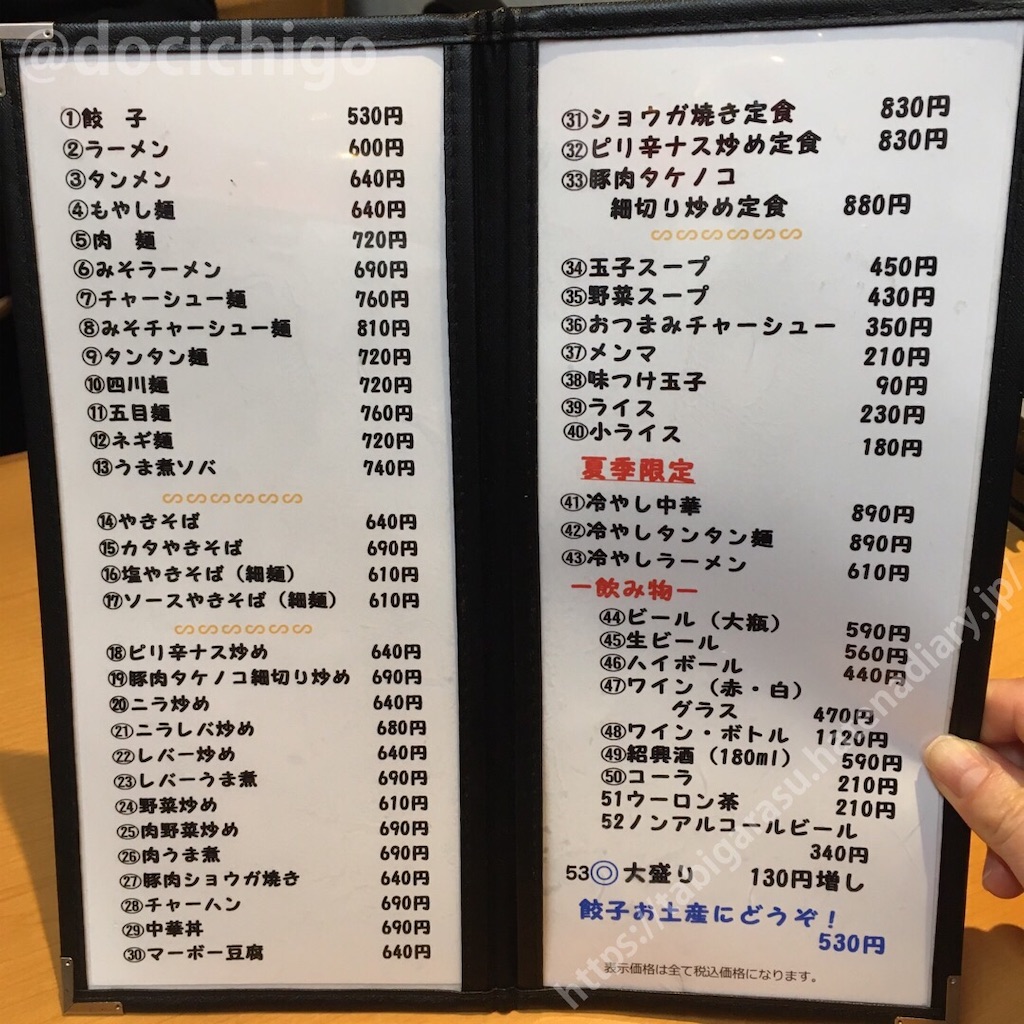 @docichigo
①餃　子　530円
②ラーメン　600円
③タンメン　640円
④もやし麺　640円
⑤肉　麺　720円
⑥みそラーメン　690円
⑦チャーシュー麺　760円
⑧みそチャーシュー麺　810円
⑨タンタン麺　720円
⑩四川麺　720円
⑪五目麺　760円
⑫ネギ麺　720円
⑬うま煮ソバ　740円
⑭やきそば　640円
⑮カタやきそば　690円
⑯塩やきそば（細麺）　610円
⑰ソースやきそば（細麺）　610円
⑱ピリ辛ナス炒め　640円
⑲豚肉タケノコ細切り炒め　690円
⑳ニラ炒め　640円
㉑ニラレバ炒め　680円
㉒レバー炒め　640円
㉓レバーうま煮　690円
㉔野菜炒め　610円
㉕肉野菜炒め　690円
㉖肉うま煮　690円
㉗豚肉ショウガ焼き　640円
㉘チャーハン　690円
㉙中華丼　690円
㉚マーボー豆腐　640円
㉛ショウガ焼き定食　830円
㉜ピリ辛ナス炒め定食　830円
㉝豚肉タケノコ
細切り炒め定食　880円
㉞玉子スープ　450円
㉟野菜スープ　430円
㊱おつまみチャーシュー　350円
㊲メンマ　210円
㊳味つけ玉子　90円
㊴ライス　230円
㊵小ライス　180円
夏季限定
㊶冷やし中華　890円
㊷冷やしタンタン麺　890円
㊸冷やしラーメン　610円
ー飲み物ー
㊹ビール（大瓶）　590円
㊺生ビール　560円
㊻ハイボール　440円
㊼ワイン（赤・白）
グラス　470円
㊽ワイン・ボトル　1120円
㊾紹興酒（180ml）　590円
㊿コーラ　210円
51ウーロン茶　210円
52ノンアルコールビール
340円
53◎大盛り　130円増し
餃子お土産にどうぞ！
530円
表示価格は全て税込価格になります。